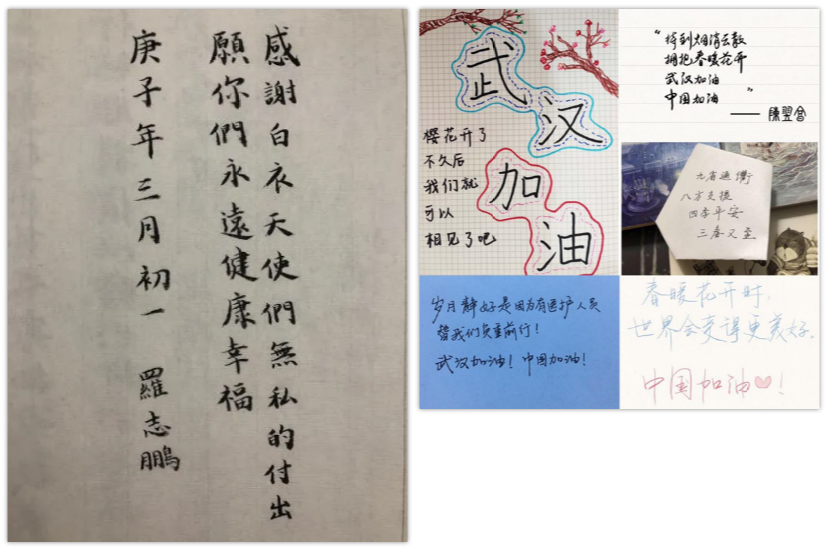 感謝白衣天使們無私的付出
願你們永遠健康幸福
庚子年三月初一 羅志鵬
武汉
加油
樱花开了
不久后
我们就
可以
相见了吧
“待到烟消云散
拥抱春暖花开
武汉加油
中国加油”
—— 陳翌會
九省通衢
八方支援
四季平安
三春又至
岁月静好是因为有医护人员
替我们负重前行!
武汉加油! 中国加油!
春暖花开时,
世界会变得更美好。
中国加油!